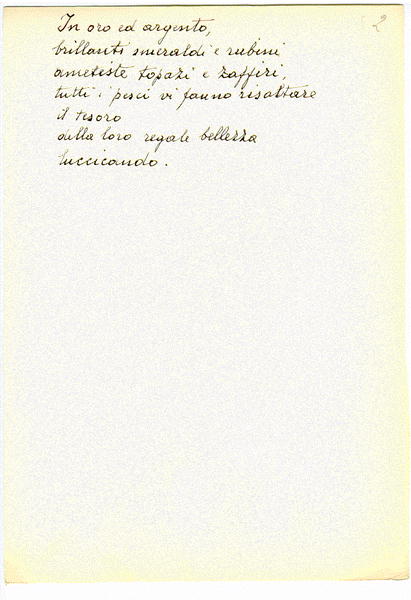 2
In oro ed argento,
brillanti smeraldi e rubini
ametiste topazi e zaffiri,
tutti i pesci vi fanno risaltare
il tesoro
della loro regale bellezza
luccicando.